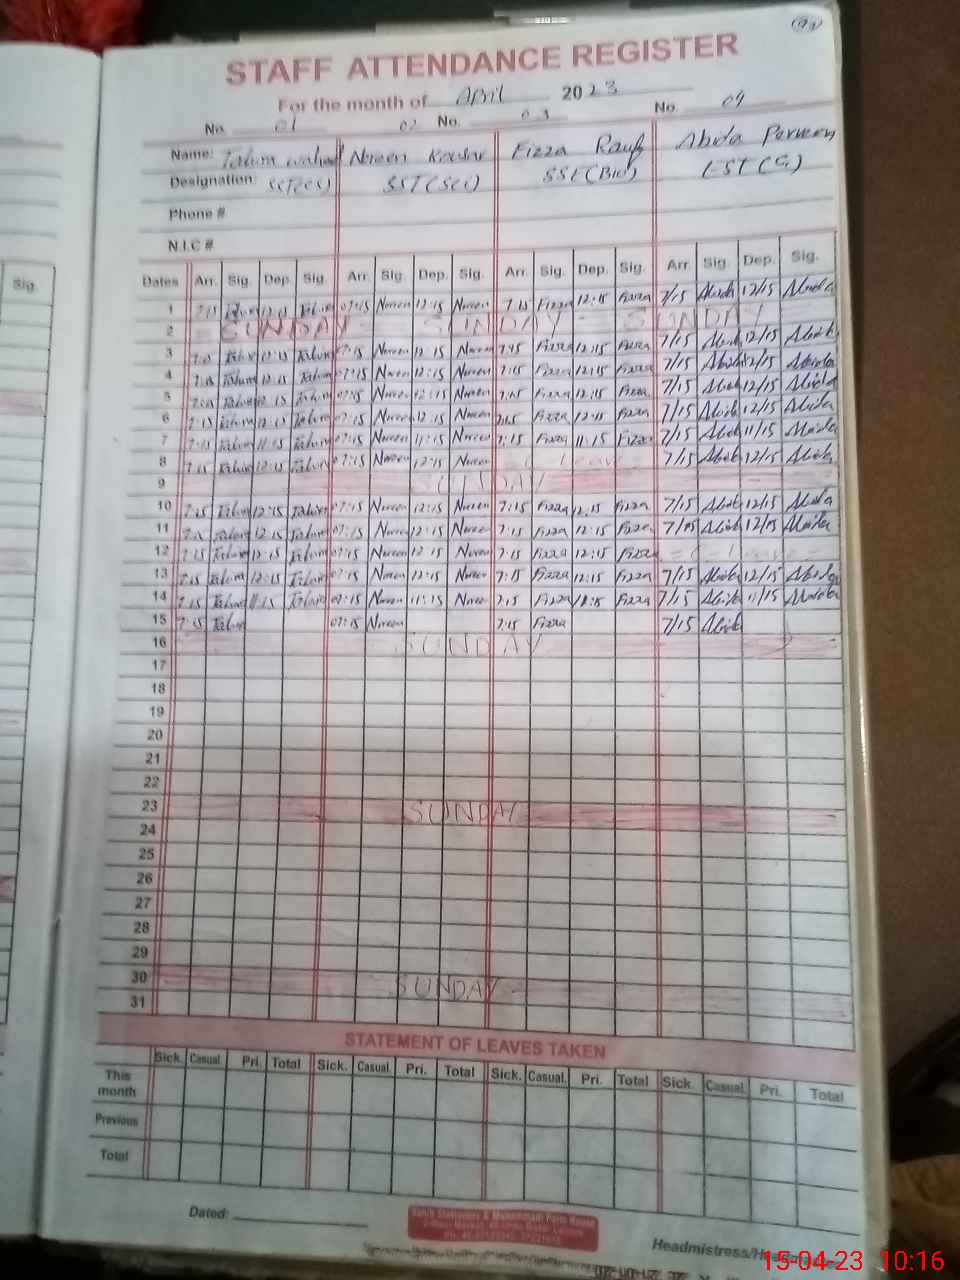 STAFF ATTENDANCE REGISTER
For the month of April 2023
No. 01 02 No. 03 No. 04
Name: Noreen Kousar Fizza Rauf Abida Perveen
Designation: SST(CS) SST(Sci) SST(Bio) EST(G)
Phone #
N.I.C #
Sig.
Dates Arr. Sig. Dep. Sig. Arr. Sig. Dep. Sig. Arr. Sig. Dep. Sig. Arr. Sig. Dep. Sig.
1 7:15 12:15 07:15 Noreen 12:15 Noreen 7:15 Fizza 12:15 Fizza 7/15 Abida 12/15 Abida
2 SUNDAY SUNDAY SUNDAY
3 7:15 12:15 07:15 Noreen 12:15 Noreen Fizza 12:15 Fizza 7/15 Abida 12/15 Abida
4 7:15 12:15 07:15 Noreen 12:15 Noreen 7:15 Fizza 12:15 Fizza 7/15 Abida 12/15 Abida
5 7:15 12:15 07:15 Noreen 12:15 Noreen 7:15 Fizza 12:15 Fizza 7/15 Abida 12/15 Abida
6 7:15 12:15 07:15 Noreen 12:15 Noreen Fizza Fizza 7/15 Abida 12/15 Abida
7 7:15 11:15 07:15 Noreen 11:15 Noreen 7:15 Fizza 11:15 Fizza 7/15 Abida 11/15 Abida
8 7:15 12:15 07:15 Noreen 12:15 Noreen Leave 7/15 Abida 12/15 Abida
9 SUNDAY
10 7:15 12:15 07:15 Noreen 12:15 Noreen 7:15 Fizza 12:15 Fizza 7/15 Abida 12/15 Abida
11 12:15 07:15 Noreen 12:15 Noreen 7:15 Fizza 12:15 Fizza Abida 12/15 Abida
12 7:15 12:15 07:15 Noreen 12:15 Noreen 7:15 Fizza 12:15 Fizza = C-Leave =
13 7:15 12:15 07:15 Noreen 12:15 Noreen 7:15 Fizza 12:15 Fizza 7/15 Abida 12/15 Abida
14 7:15 11:15 07:15 Noreen 11:15 Noreen 7:15 Fizza 11:15 Fizza 7/15 Abida 11/15 Abida
15 7:15 07:15 Noreen 7:15 Fizza 7/15 Abida
16 SUNDAY
17
18
19
20
21
22
23 SUNDAY
24
25
26
27
28
29
30 SUNDAY
31
STATEMENT OF LEAVES TAKEN
Sick. Casual. Pri. Total Sick. Casual. Pri. Total Sick. Casual. Pri. Total Sick. Casual. Pri. Total
This month
Previous
Total
Dated:
15-04-23 10:16